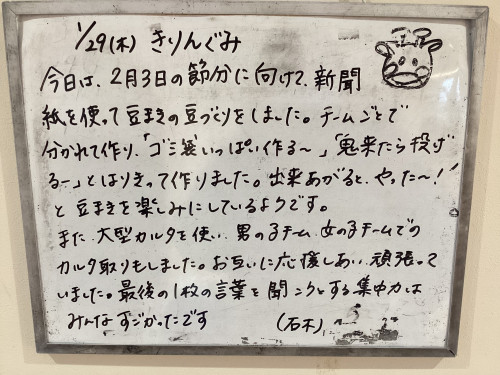 1/29(木) きりんぐみ
今日は、2月3日の節分に向けて、新聞
紙を使って豆まきの豆づくりをしました。チームごとで
分かれて作り、「ゴミ袋いっぱい作る〜」「鬼来たら投げ
る〜」とはりきって作りました。出来あがると、やった〜!
と豆まきを楽しみにしているようです。
また、大型カルタを使い、男の子チーム、女の子チームでの
カルタ取りもしました。お互いに応援しあい、頑張って
いました。最後の1枚の言葉を聞こうとする集中力は
みんなすごかったです (石木)